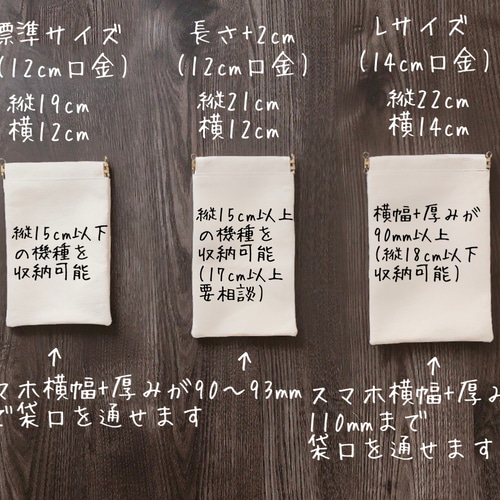 標準サイズ
(12cm口金)
縦19cm
横12cm
縦15cm以下
の機種を
収納可能
長さ+2cm
(12cm口金)
縦21cm
横12cm
縦15cm以上
の機種を
収納可能
(17cm以上
要相談)
Lサイズ
(14cm口金)
縦22cm
横14cm
横幅+厚みが
90mm以上
(縦18cm以下
収納可能)
↑
マホ横幅+厚みが90〜93mm
で袋口を通せます
↑
↑
スマホ横幅+厚み
110mmまで
袋口を通せます